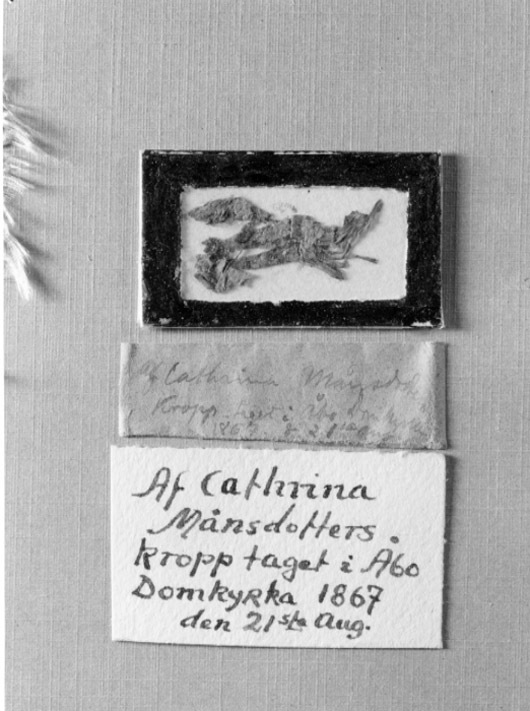 af Cathrina Månsdot
Kropp taget i Åbo Domkyrka
1867 d 21sta
Af Cathrina
Månsdotters
kropp taget i Åbo
Domkyrka 1867
den 21sta Aug.